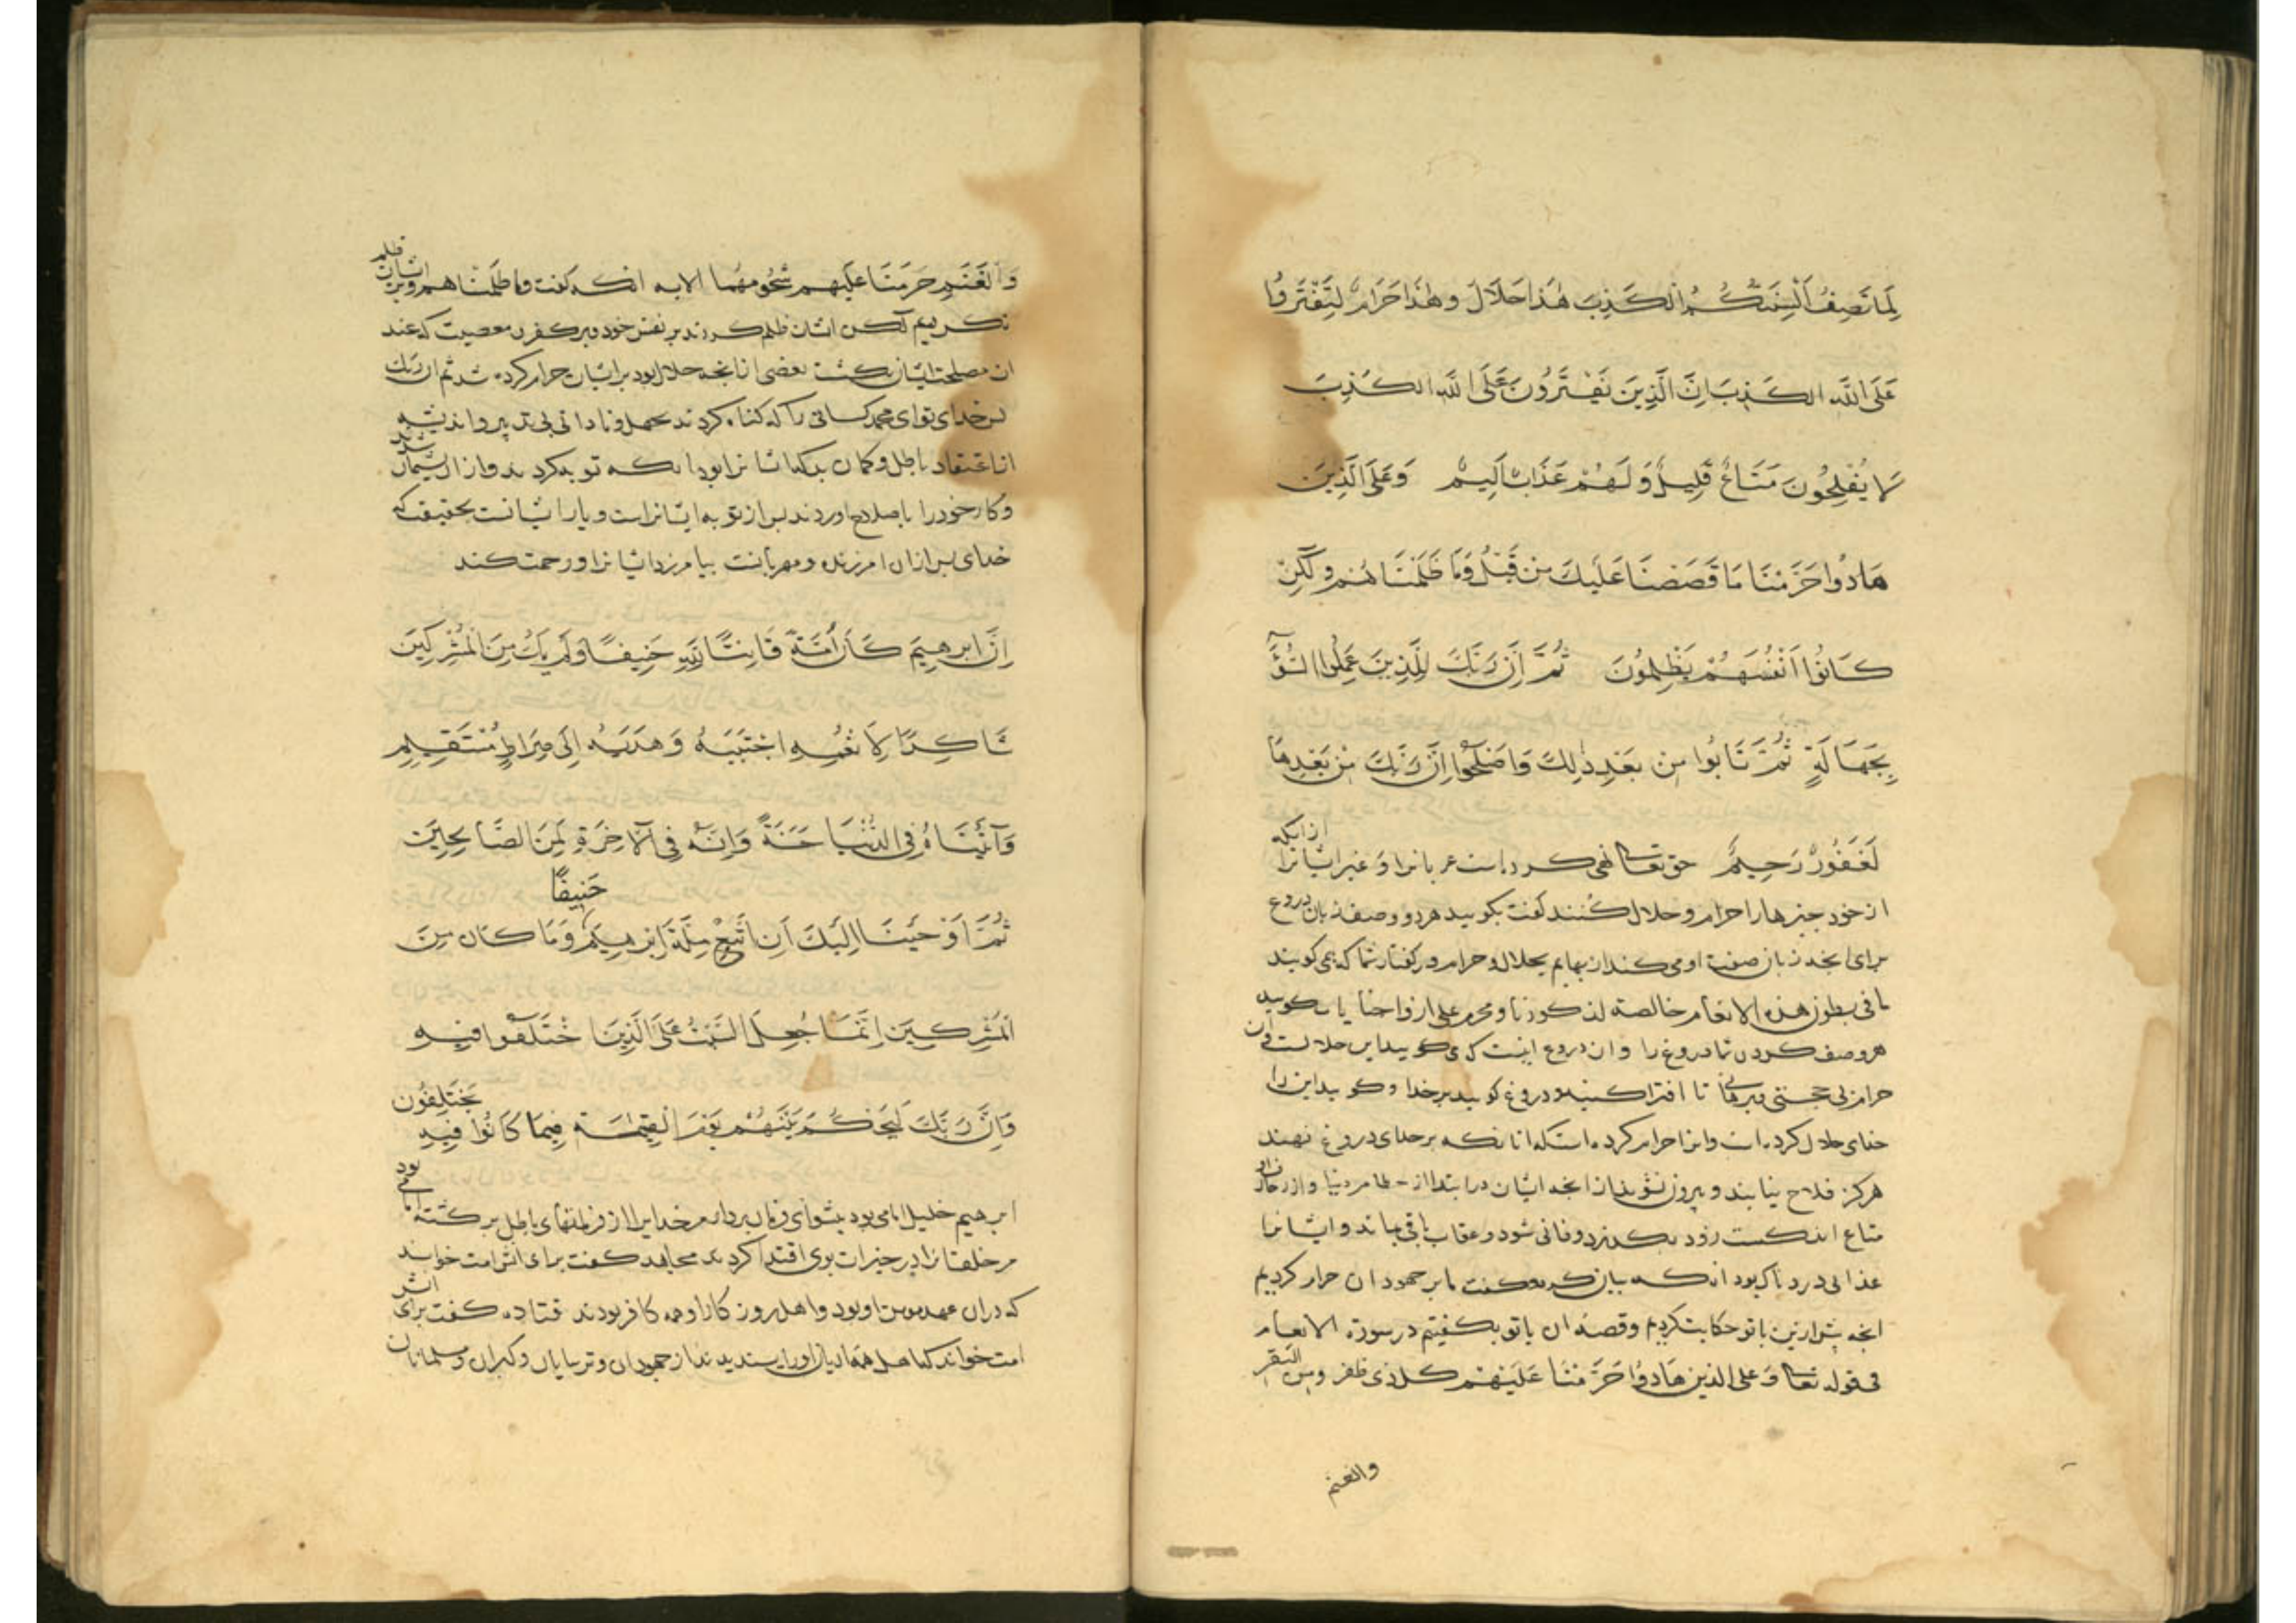 لِمَا تَصِفُ اَلْسِنَتُكُمُ الْكَذِبَ هٰذَا حَلَالٌ وهٰذَا حَرَامٌ لِتَفْتَرُوا
عَلَى اللّٰهِ الكَذِبَ اِنَّ الَّذِينَ يَفْتَرُونَ عَلَى اللّٰهِ الكَذِبَ
لَا يُفْلِحُونَ مَتَاعٌ قَلِيلٌ وَلَهُمْ عَذَابٌ اَلِيمٌ وَعَلَى الَّذِينَ
هَادُوا حَرَّمْنَا مَا قَصَصْنَا عَلَيْكَ مِن قَبْلُ وَمَا ظَلَمْنَاهُمْ وَلٰكِنْ
كَانُوا اَنْفُسَهُمْ يَظْلِمُونَ ثُمَّ اِنَّ رَبَّكَ لِلَّذِينَ عَمِلُوا السُّوٓءَ
بِجَهَالَةٍ ثُمَّ تَابُوا مِن بَعْدِ ذٰلِكَ وَاَصْلَحُوٓا اِنَّ رَبَّكَ مِنْ بَعْدِهَا
لَغَفُورٌ رَحِيمٌ حق تعالی نهی کرده است عربانرا و غیر ایشانرا از انکه
از خود چیزها را حرام و حلال کنند گفت بگویید هر دو وصف زبان دروغ
برای انچه زبان صفت او می کند از بهایم بحلال و حرام در گفتار شما که می گویند
ما فی بطون هذه الانعام خالصة لذکورنا ومحرم علی ازواجنا یا بگویید
هر وصف کردن شما دروغ را و ان دروغ اینست که می گویید این حلالست وان
حرام بی حجتی و برهانی تا افترا کنید و دروغ گویید بر خدا و گویید این را
خدای حلال کرده است و انرا حرام کرده است که انانکه بر خدای دروغ نهند
هرکز فلاح نیابند و پیروز نشوند از انچه ایشان در ابتدااند از حطام دنیا و از
متاع اندکست زود بگذرد و فانی شود و عقاب باقی بماند و ایشانرا
عذابی دردناک بود انکه بیان کرد و گفت ما بر جهودان حرام کردیم
انچه پیش ازین با تو حکایت کردیم و قصه ان با تو بگفتیم در سورة الانعام
فی قوله تعالی وَعلی الذین هَادُوا حَرَّمْنَا عَلَیْهِمْ کل ذی ظفر ومن البقر
والغنم
وَالْغَنَمِ حَرَّمْنَا عَلَیْهِم شُحُومَهُمَا الایه انکه گفت وما ظلمناهم و بر ایشان ظلم
نکردیم لکن ایشان ظلم کردند بر نفس خود و بر کفر و معصیت که عند
ان مصلحت ایشان بگشت بعضی از انچه حلال بود بر ایشان حرام کرده شد ثم ان ربک
پس خدای تو ای محمد کسانی را که گناه کردند بجهل و نادانی بی تدبیر و اندیشه
از اعتقاد باطل و گمان بد که ایشانرا بود انکه توبه کردند و از ان پشیمان شدند
وکار خود را باصلاح اوردند پس از توبه ایشانراست و یا رایشانست بحقیقت که
خدای پس از ان امرزنده و مهربانست بیامرزد ایشانرا و رحمت کند
اِنَّ اِبرهِيمَ كَانَ اُمَّةً قَانِتًا لِلّٰهِ حَنِيفًا وَلَمْ يَكُ مِنَ الْمُشْرِكِينَ
شَاكِرًا لِاَنْعُمِهِ اجْتَبَيٰهُ وَهَدَيٰهُ اِلَى صِرَاطٍ مُسْتَقِيمٍ
وَآتَيْنَاهُ فِي الدُّنْيَا حَسَنَةً وَاِنَّهُ فِي الْاٰخِرَةِ لَمِنَ الصَّالِحِينَ
ثُمَّ اَوْحَيْنَا اِلَيْكَ اَنِ اتَّبِعْ مِلَّةَ اِبْرهِيمَ حَنِيفًا وَمَا كَانَ مِنَ
الْمُشْرِكِينَ اِنَّمَا جُعِلَ السَّبْتُ عَلَى الَّذِينَ اخْتَلَفُوا فِيهِ
وَاِنَّ رَبَّكَ لَيَحْكُمُ بَيْنَهُمْ يَوْمَ الْقِيٰمَةِ فِيمَا كَانُوا فِيهِ يَخْتَلِفُون
ابرهیم خلیل امامی بود پیشوای و فرمان بردار مر خدایرا از فرمانهای باطل برگشته امامی بود
مر خلقانرا در خیرات بوی اقتدا کردند مجاهد گفت برای انش امت خواند
که دران عهد مومن او بود و اهل روزگار او همه کافر بودند قتاده گفت برای انش
امت خواند که اهل همه ادیان او را پسندیدند از جهودان و ترسایان و گبران و مسلمانان